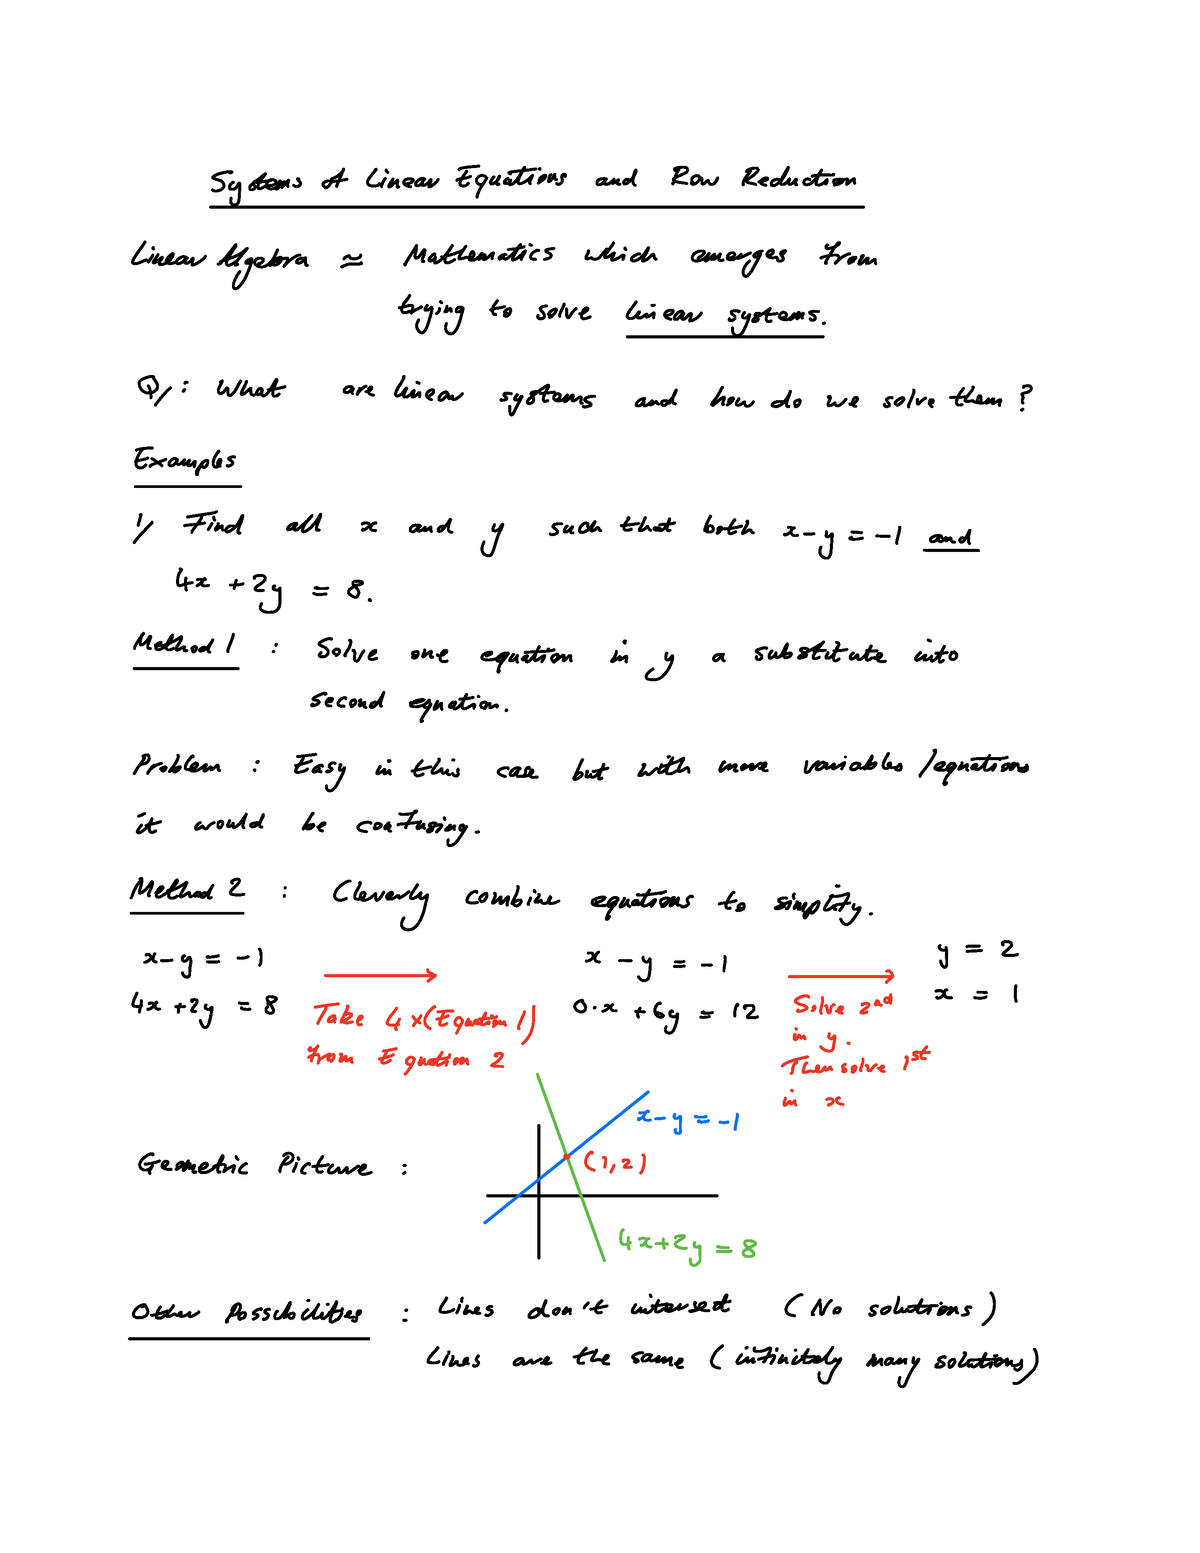 Systems of Linear Equations and Row Reduction
Linear Algebra ≃ Mathematics which emerges from
trying to solve linear systems.
Q/: What are linear systems and how do we solve them?
Examples
1/ Find all x and y such that both x-y = -1 and
4x + 2y = 8.
Method 1 : Solve one equation in y a substitute into
second equation.
Problem : Easy in this case but with more variables/equations
it would be confusing.
Method 2 : Cleverly combine equations to simplify.
x-y = -1
4x+2y = 8
Take 4×(Equation 1)
from Equation 2
x - y = -1
0·x + 6y = 12
Solve 2nd
in y.
Then solve 1st
in x
y = 2
x = 1
Geometric Picture :
x-y = -1
(1,2)
4x+2y = 8
Other Possibilities : Lines don't intersect (No solutions)
Lines are the same (infinitely many solutions)